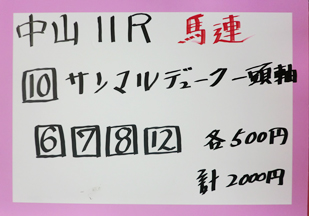 中山11R 馬連
10 サンマルデューク一頭軸
6 7 8 12 各500円
計2000円